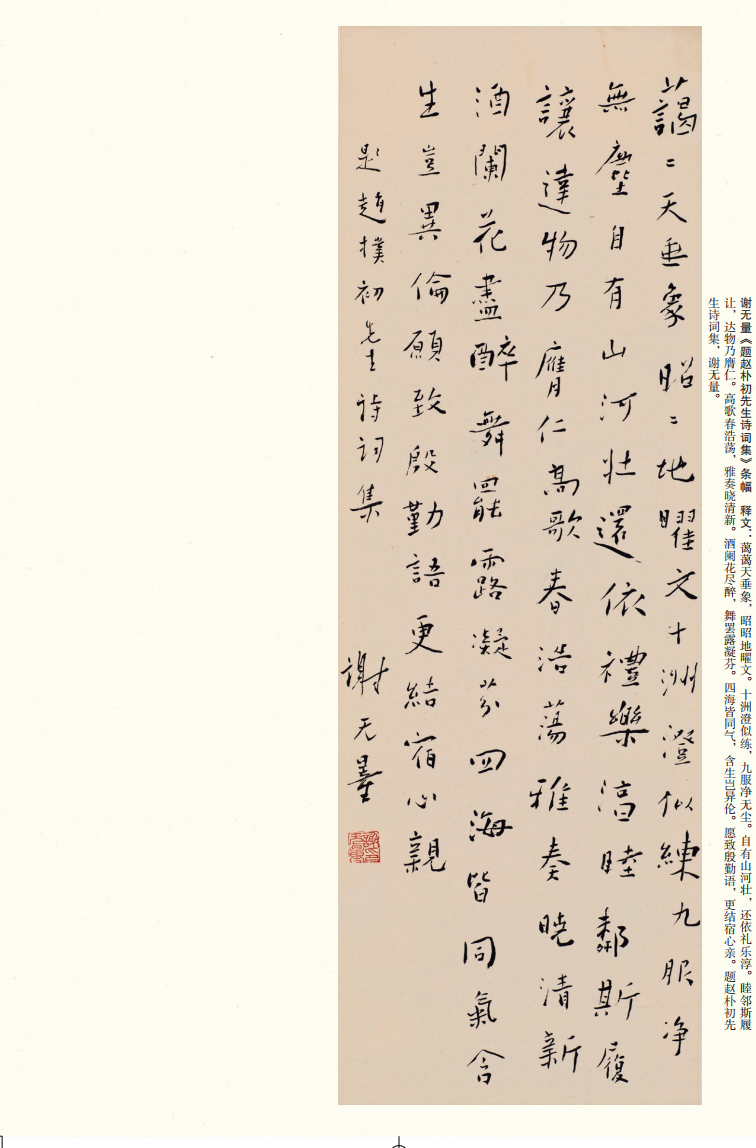 谢无量《题赵朴初先生诗词集》条幅　释文：蔼蔼天垂象，昭昭地曜文。十洲澄似练，九服净无尘。自有山河壮，还依礼乐淳。睦邻斯履
让，达物乃膺仁。高歌春浩荡，雅奏晓清新。酒阑花尽醉，舞罢露凝芬。四海皆同气，含生岂异伦。愿致殷勤语，更结宿心亲。题赵朴初先
生诗词集，谢无量。
藹〻天垂象昭〻地曜文十洲澄似練九服净
無塵自有山河壯還依禮樂淳睦鄰斯履
讓達物乃膺仁高歌春浩蕩雅奏曉清新
酒闌花盡醉舞罷露凝芬四海皆同氣含
生豈異倫願致殷勤語更結宿心親
題趙樸初先生詩詞集　謝无量